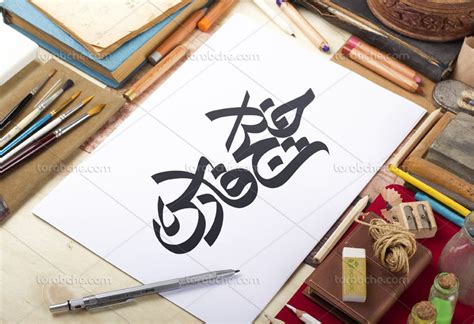 torobche.com
torobche.com
torobche.com
torobche.com
خلیج فارس
torobche.com
torobche.com
torobche.com
torobche.com
torobche.com